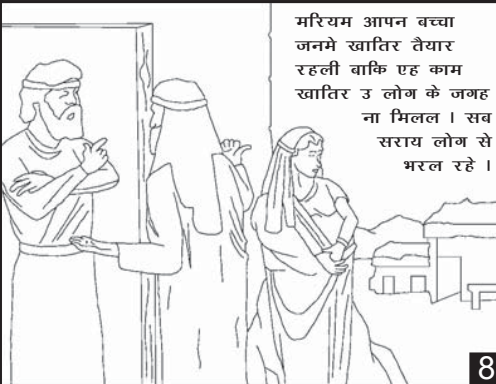 मरियम आपन बच्चा
जनमे खातिर तैयार
रहली बाकि एह काम
खातिर उ लोग के जगह
ना मिलल । सब
सराय लोग से
भरल रहे ।
8